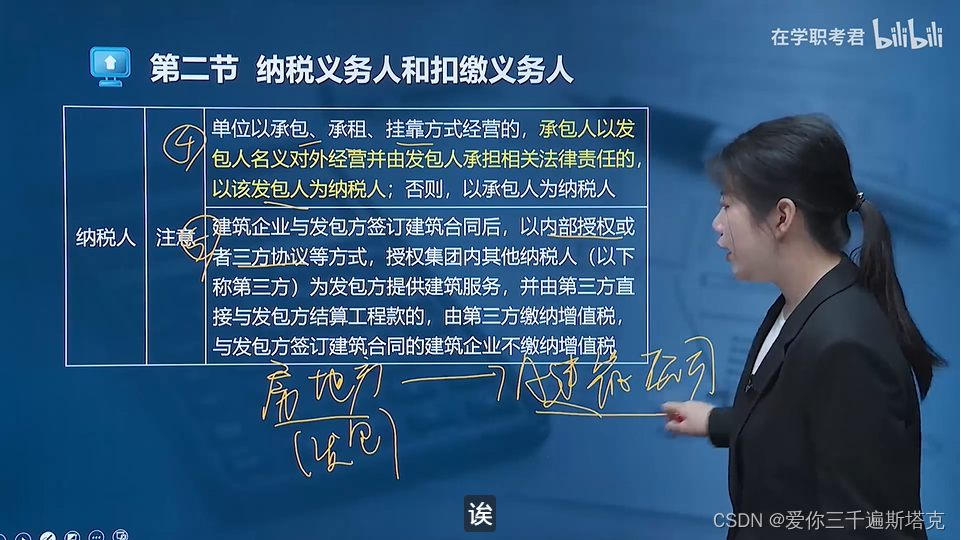 在学职考君 bilibili
第二节 纳税义务人和扣缴义务人
纳税人
注意
④
单位以承包、承租、挂靠方式经营的，承包人以发
包人名义对外经营并由发包人承担相关法律责任的，
以该发包人为纳税人；否则，以承包人为纳税人
⑤
建筑企业与发包方签订建筑合同后，以内部授权或
者三方协议等方式，授权集团内其他纳税人（以下
称第三方）为发包方提供建筑服务，并由第三方直
接与发包方结算工程款的，由第三方缴纳增值税，
与发包方签订建筑合同的建筑企业不缴纳增值税
房地产
建筑公司
(发包)
诶
CSDN @爱你三千遍斯塔克